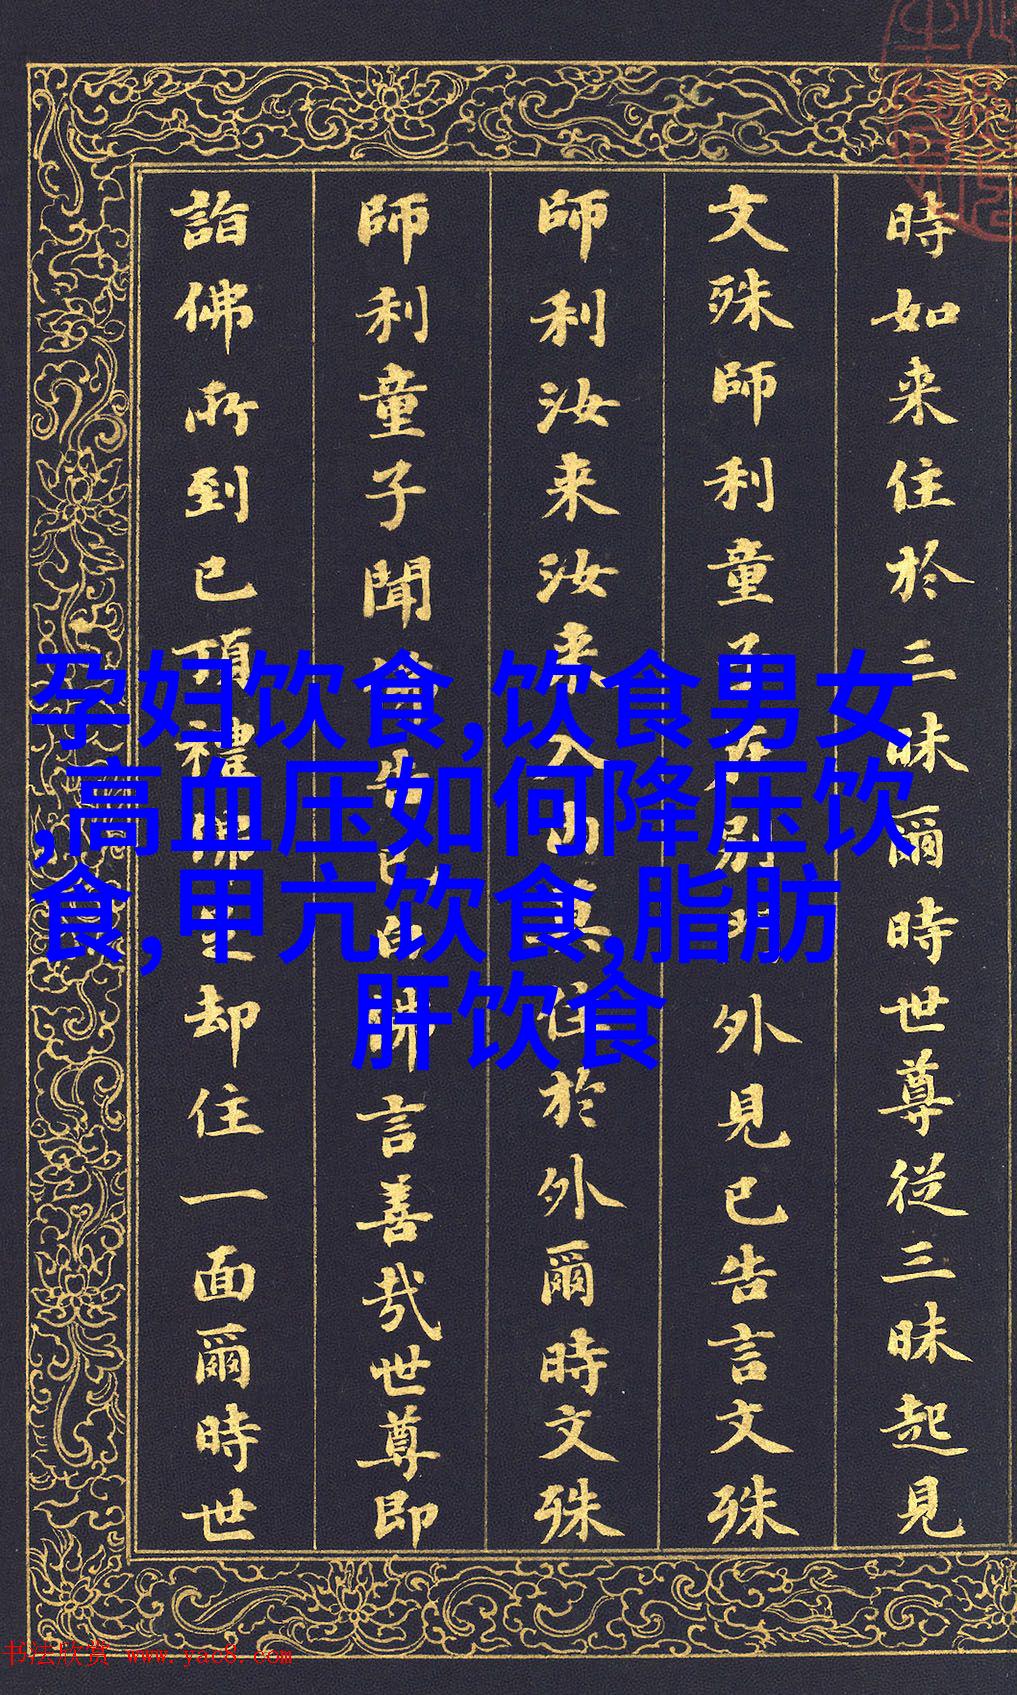 時如来住於三昧爾時世尊從三昧起見
文殊師利童子在別門外見已告言文殊
師利汝来汝来入内莫住於外爾時文殊
師利童子聞告已白佛言善哉世尊即
詣佛所到已頂禮佛足却住一面爾時世
孕妇饮食,饮食男女
,高血压如何降压饮
食,甲亢饮食,脂肪
肝饮食
书法欣赏 www.yac8.com